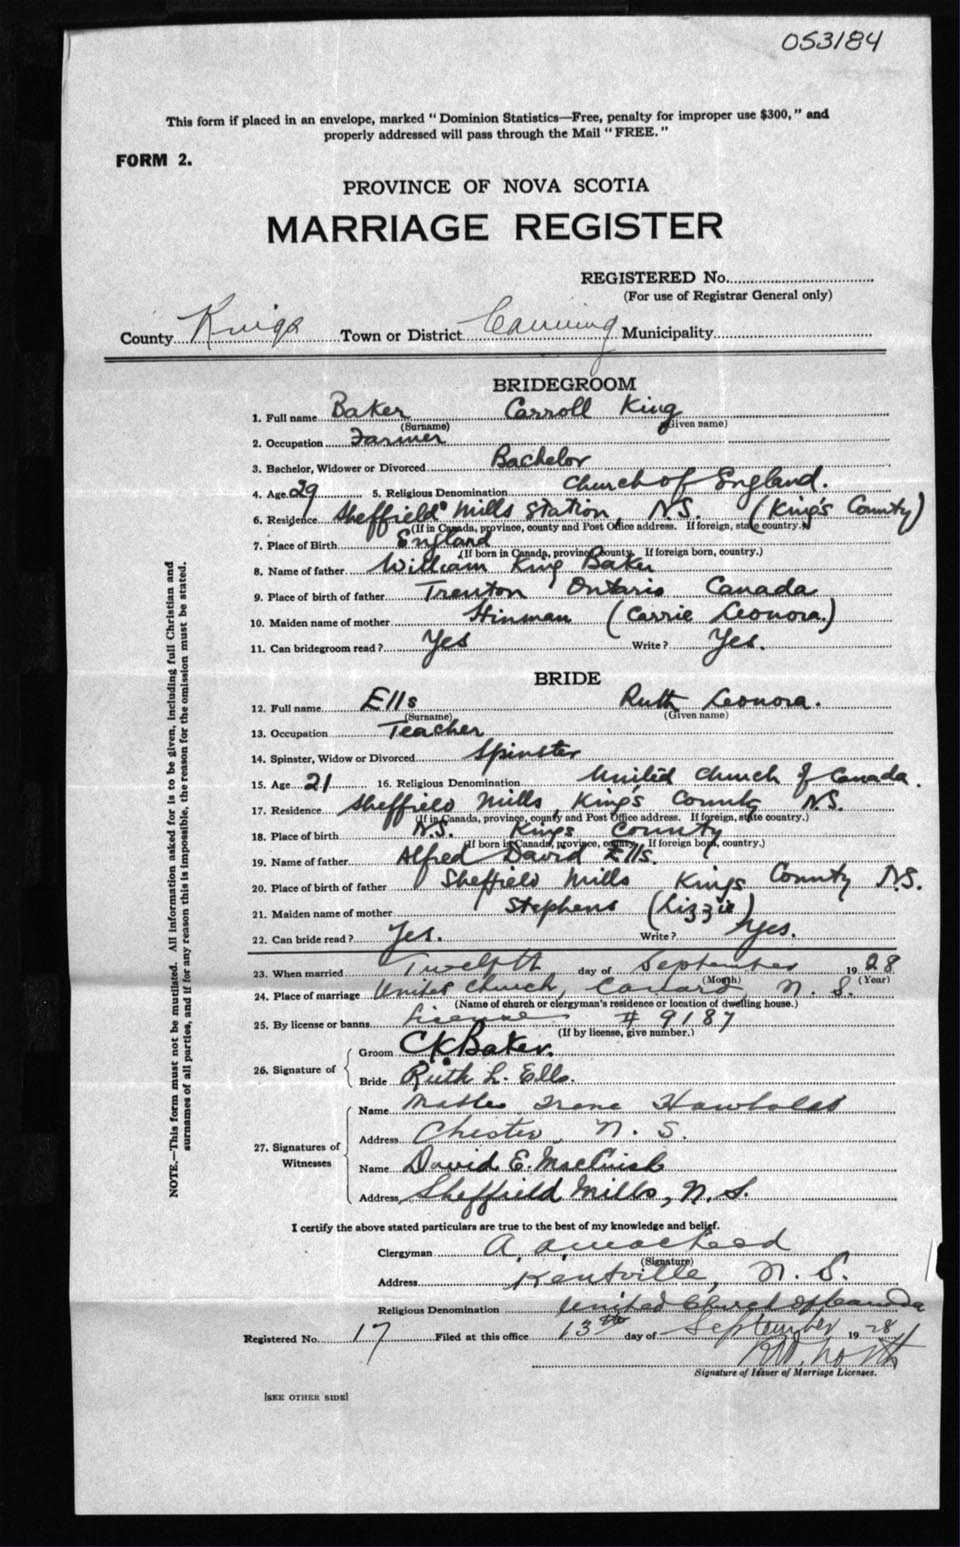 053184
This form if placed in an envelope, marked "Dominion Statistics—Free, penalty for improper use $300," and
properly addressed will pass through the Mail "FREE."
FORM 2.
PROVINCE OF NOVA SCOTIA
MARRIAGE REGISTER
REGISTERED No.
(For use of Registrar General only)
County Kings Town or District Canning Municipality
BRIDEGROOM
1. Full name Baker Carroll King
(Surname) (Given name)
2. Occupation Farmer
3. Bachelor, Widower or Divorced Bachelor
4. Age 29 5. Religious Denomination Church of England.
6. Residence Sheffield Mills Station, N.S. (King's County)
(If in Canada, province, county and Post Office address. If foreign, state country.)
7. Place of Birth England
(If born in Canada, province, county. If foreign born, country.)
8. Name of father William King Baker
9. Place of birth of father Trenton Ontario Canada
10. Maiden name of mother Hinman (Carrie Leonora.)
11. Can bridegroom read? Yes Write? Yes.
BRIDE
12. Full name Ells Ruth Leonora.
(Surname) (Given name)
13. Occupation Teacher
14. Spinster, Widow or Divorced Spinster
15. Age 21 16. Religious Denomination United Church of Canada.
17. Residence Sheffield Mills, King's County N.S.
(If in Canada, province, county and Post Office address. If foreign, state country.)
18. Place of birth N.S. Kings County
(If born in Canada, province, county. If foreign born, country.)
19. Name of father Alfred David Ells.
20. Place of birth of father Sheffield Mills Kings County N.S.
21. Maiden name of mother Stephens (Lizzie)
22. Can bride read? Yes. Write? Yes.
23. When married Twelfth day of September 1928
(Month) (Year)
24. Place of marriage United Church, Canard, N.S.
(Name of church or clergyman's residence or location of dwelling house.)
25. By license or banns License # 9187
(If by license, give number.)
26. Signature of
Groom CK Baker.
Bride Ruth L. Ells.
27. Signatures of Witnesses
Name Irene
Address Chester, N. S.
Name David E.
Address Sheffield Mills, N. S.
I certify the above stated particulars are true to the best of my knowledge and belief.
Clergyman A.
(Signature)
Address Kentville, N. S.
Religious Denomination United Church of Canada
Registered No. 17 Filed at this office 13th day of September 1928
North
Signature of Issuer of Marriage Licenses.
[SEE OTHER SIDE]
NOTE.—This form must not be mutilated. All information asked for is to be given, including full Christian and
surnames of all parties, and if for any reason this is impossible, the reason for the omission must be stated.